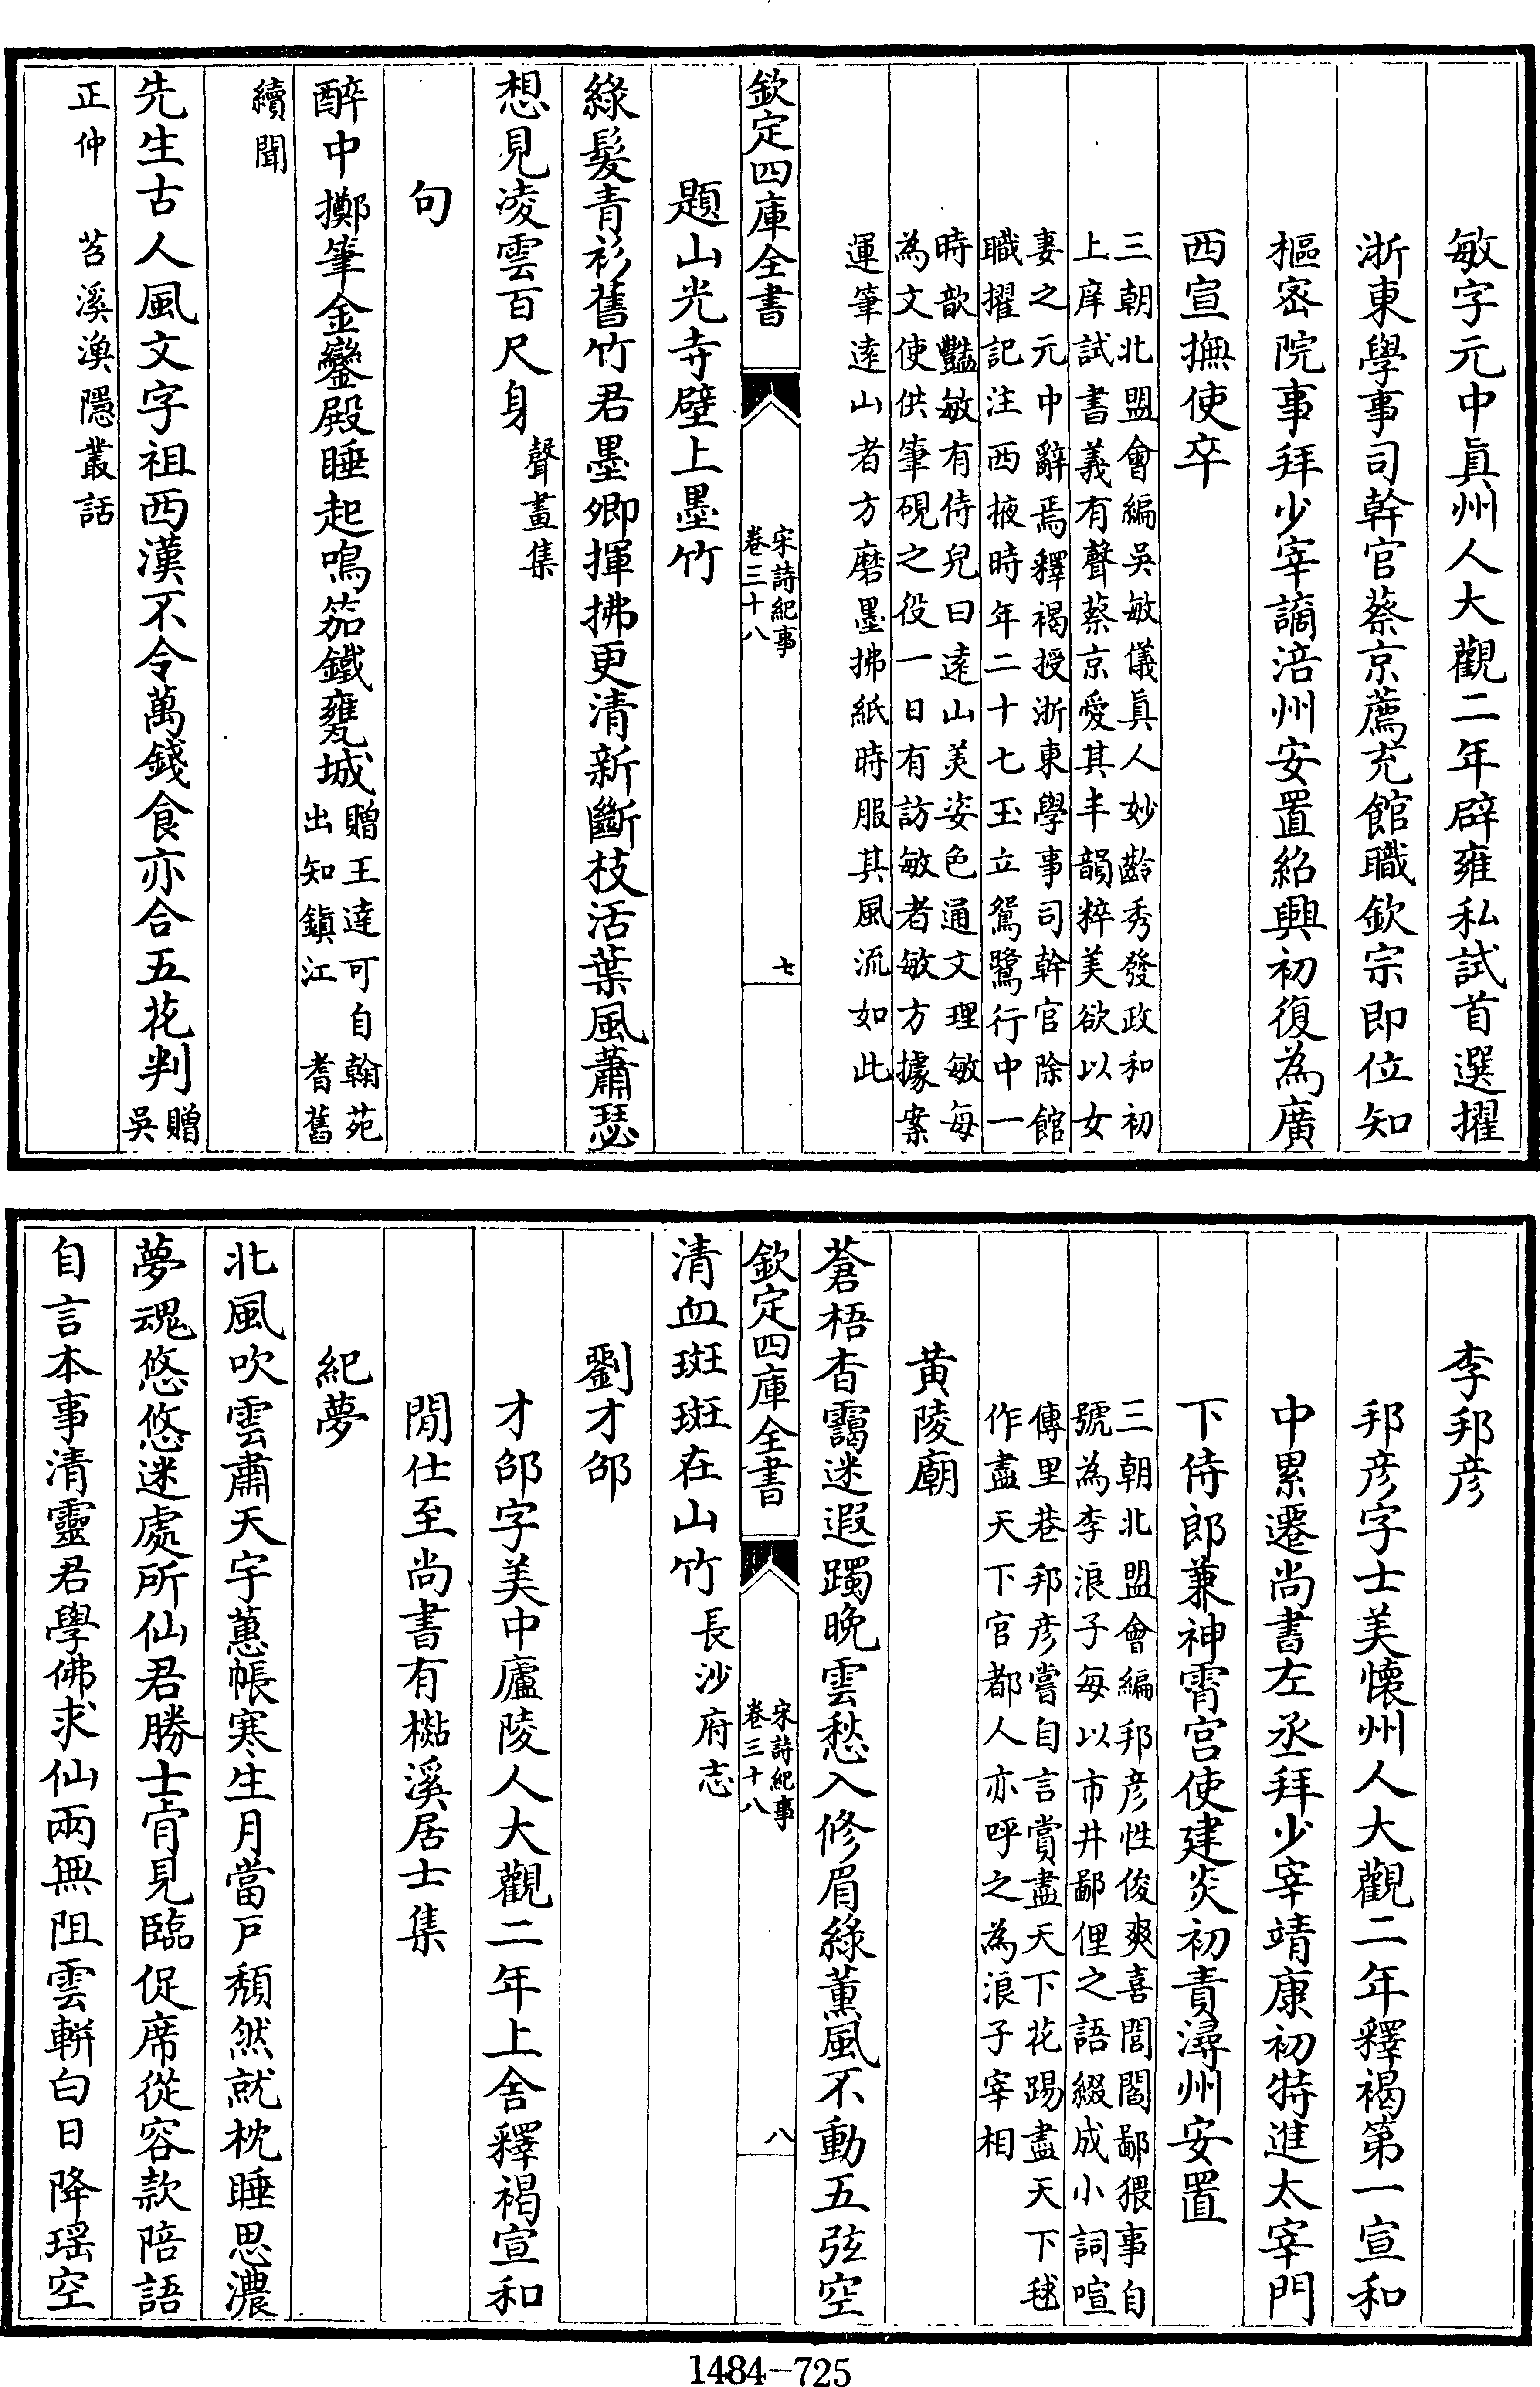 敏字元中眞州人大觀二年辟雍私試首選擢
浙東學事司幹官蔡京薦充館職欽宗即位知
樞密院事拜少宰謫涪州安置紹興初復為廣
西宣撫使卒
三朝北盟會編吳敏儀眞人妙齡秀發政和初
上庠試書義有聲蔡京愛其丰韻粹美欲以女
妻之元中辭焉釋褐授浙東學事司幹官除館
職擢記注西掖時年二十七玉立鴛鷺行中一
時歆豔敏有侍兒曰遠山美姿色通文理敏每
為文使供筆硯之役一日有訪敏者敏方據案
運筆逺山者方磨墨拂紙時服其風流如此
欽定四庫全書
宋詩紀事
卷三十八
七
題山光寺壁上墨竹
綠髮青衫舊竹君墨卿揮拂更清新斷枝活葉風蕭瑟
想見凌雲百尺身
聲畫集
句
醉中擲筆金鑾殿睡起鳴笳鐵甕城
贈王逹可自翰苑
出知鎮江　耆舊
續聞
先生古人風文字祖西漢不令萬錢食亦合五花判
贈
吳
正仲　苕溪漁隱叢話
李邦彦
邦彦字士美懐州人大觀二年釋褐第一宣和
中累遷尚書左丞拜少宰靖康初特進太宰門
下侍郎兼神霄宫使建炎初責潯州安置
三朝北盟會編邦彦性俊爽喜閭閻鄙猥事自
號為李浪子每以市井鄙俚之語綴成小詞喧
傳里巷邦彦嘗自言賞盡天下花踢盡天下毬
作盡天下官都人亦呼之為浪子宰相
黄陵廟
蒼梧杳靄迷遐躅晩雲愁入修眉綠薫風不動五弦空
欽定四庫全書
宋詩紀事
卷三十八
八
清血斑斑在山竹
長沙府志
劉才邵
才邵字美中廬陵人大觀二年上舍釋褐宣和
閒仕至尚書有檆溪居士集
紀夢
北風吹雲肅天宇蕙帳寒生月當戸頽然就枕睡思濃
夢魂悠悠迷處所仙君勝士肎見臨促席從容款陪語
自言本事清靈君學佛求仙兩無阻雲軿白日降瑶空
1484-725